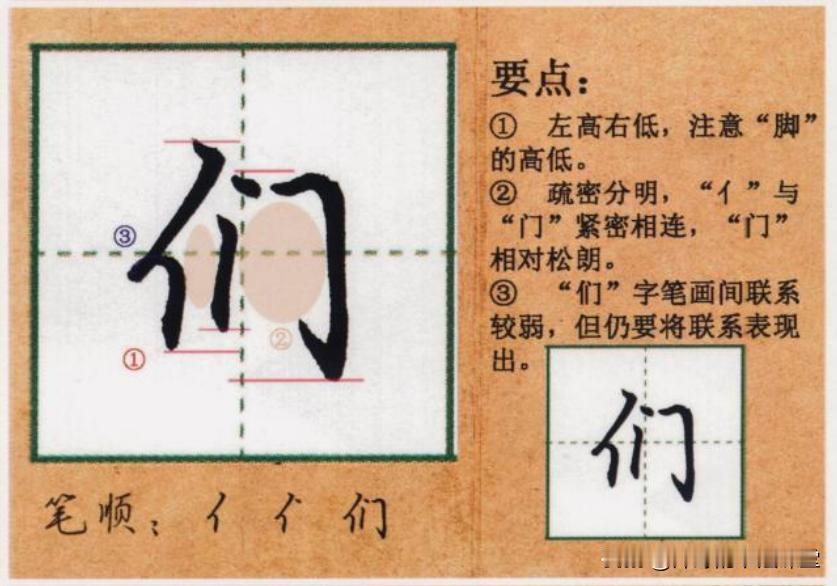 们
③
②
①
要点：
① 左高右低，注意“脚”
的高低。
② 疏密分明，“亻”与
“门”紧密相连，“门”
相对松朗。
③ “们”字笔画间联系
较弱，但仍要将联系表现
出。
们
笔顺：亻 们